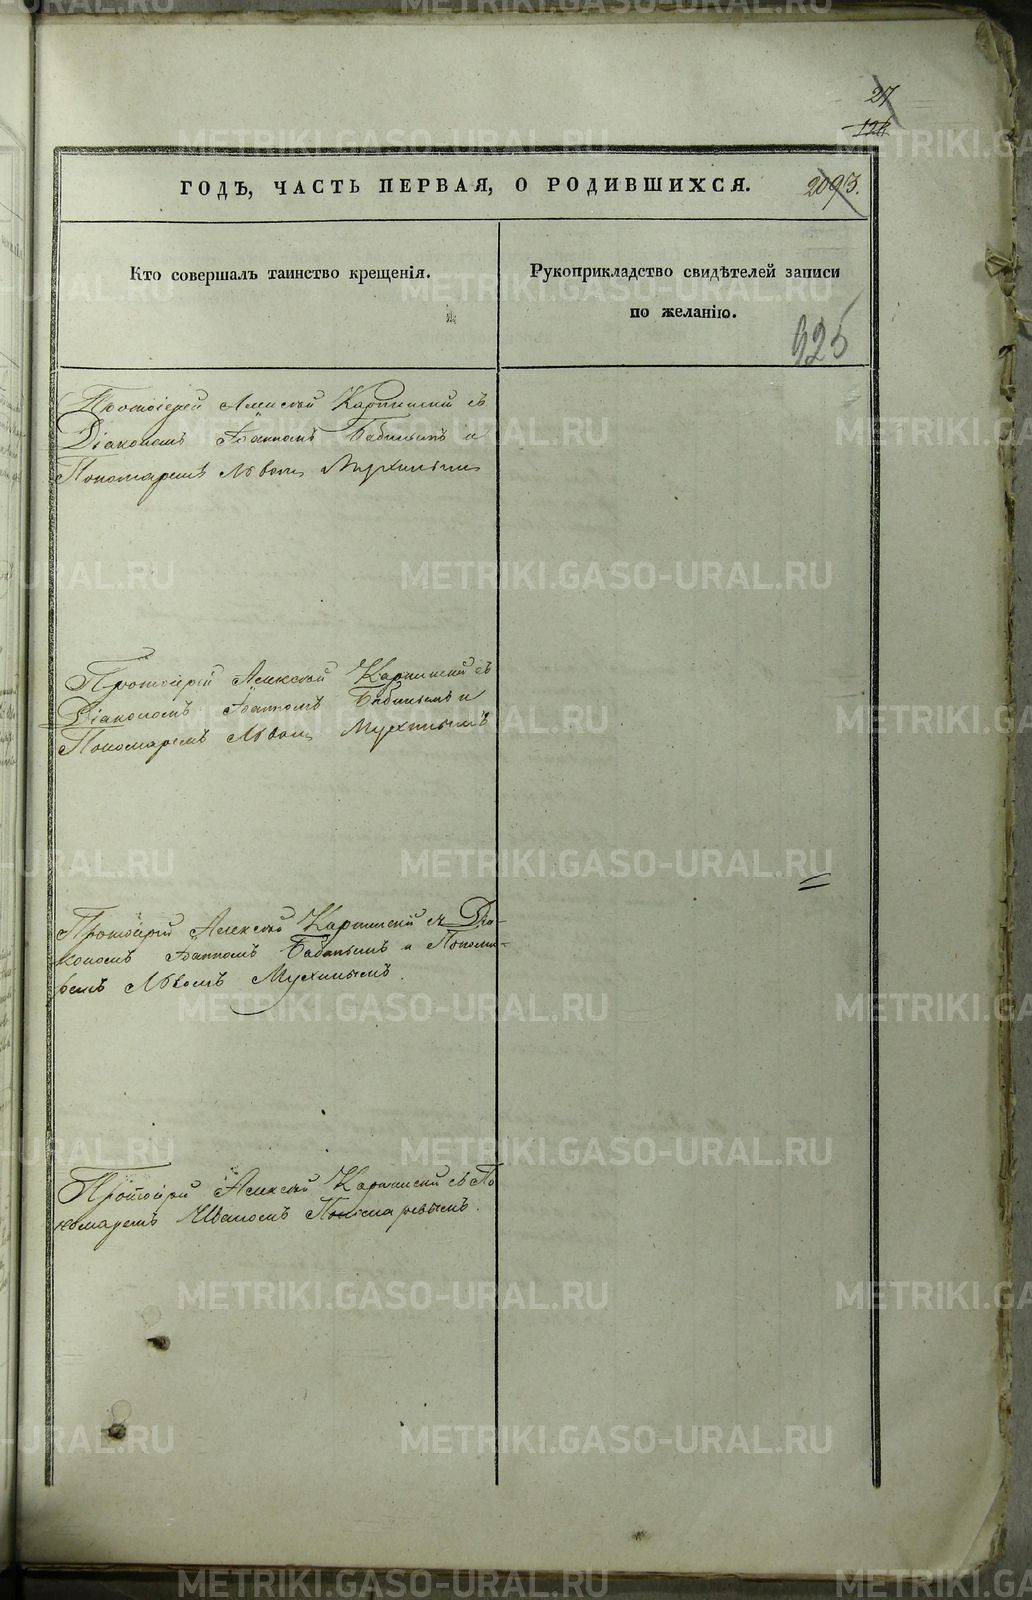 27
126
ГОДЪ, ЧАСТЬ ПЕРВАЯ, О РОДИВШИХСЯ.
2093.
Кто совершалъ таинство крещенія.
Рукоприкладство свидѣтелей записи
по желанію.
925
Протоіерей Алексѣй Карпинскій съ
Діакономъ Іоанномъ Бабинымъ и
Пономаремъ Львомъ Мухинымъ
Протоіерей Алексѣй Карпинскій съ
Діакономъ Іоанномъ Бабинымъ и
Пономаремъ Львомъ Мухинымъ
Протоіерей Алексѣй Карпинскій съ Діа-
кономъ Іоанномъ Бабинымъ и Понома-
ремъ Львомъ Мухинымъ.
Протоіерей Алексѣй Карпинскій съ По
номаремъ Иваномъ Пономаревымъ.
METRIKI.GASO-URAL.RU